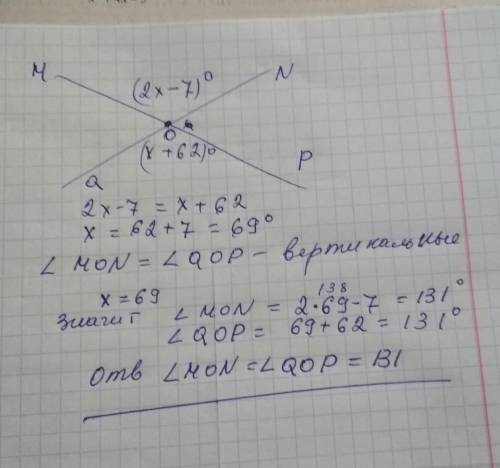 M N
(2x-7)°
O
(x+62)°
Q P
2x-7 = x+62
x = 62+7 = 69°
∠ MON = ∠ QOP - вертикальные
x = 69
138
Значит ∠ MON = 2·69-7 = 131°
∠ QOP = 69+62 = 131°
Отв ∠MON = ∠QOP = 131